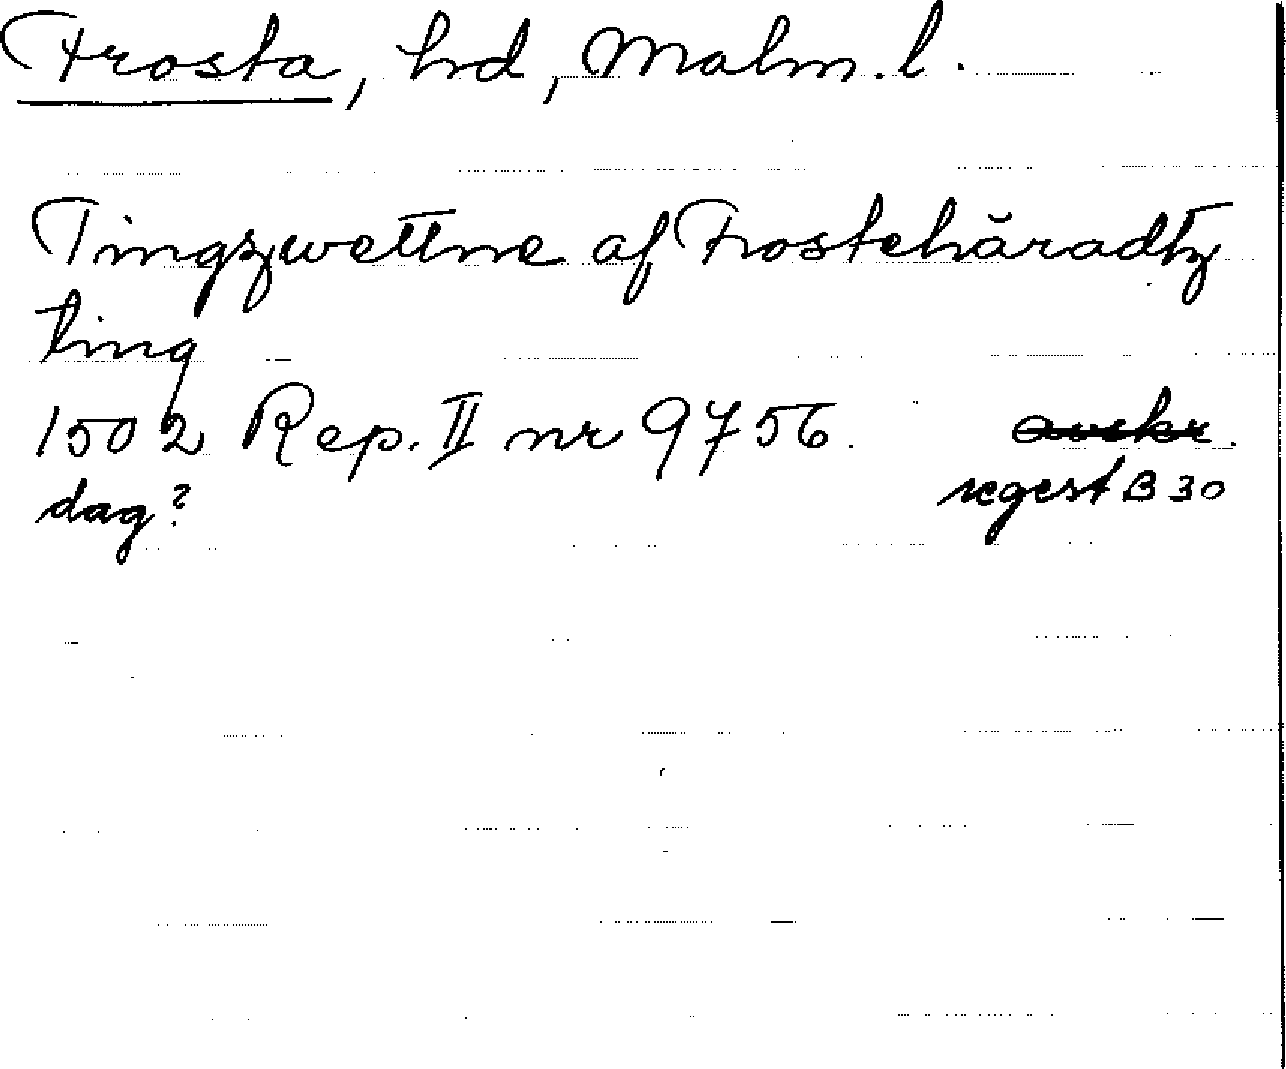 Frosta, hrd, Malm. l.
Tingzwettne af Frostehäradtz
ting
1502 Rep. II nr 9756. avskr.
dag? regest B 30